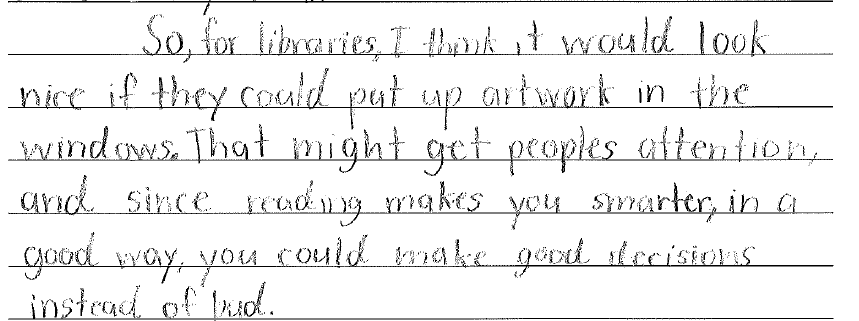 So, for libraries, I think it would look
nice if they could put up artwork in the
windows. That might get peoples attention,
and since reading makes you smarter, in a
good way, you could make good decisions
instead of bad.